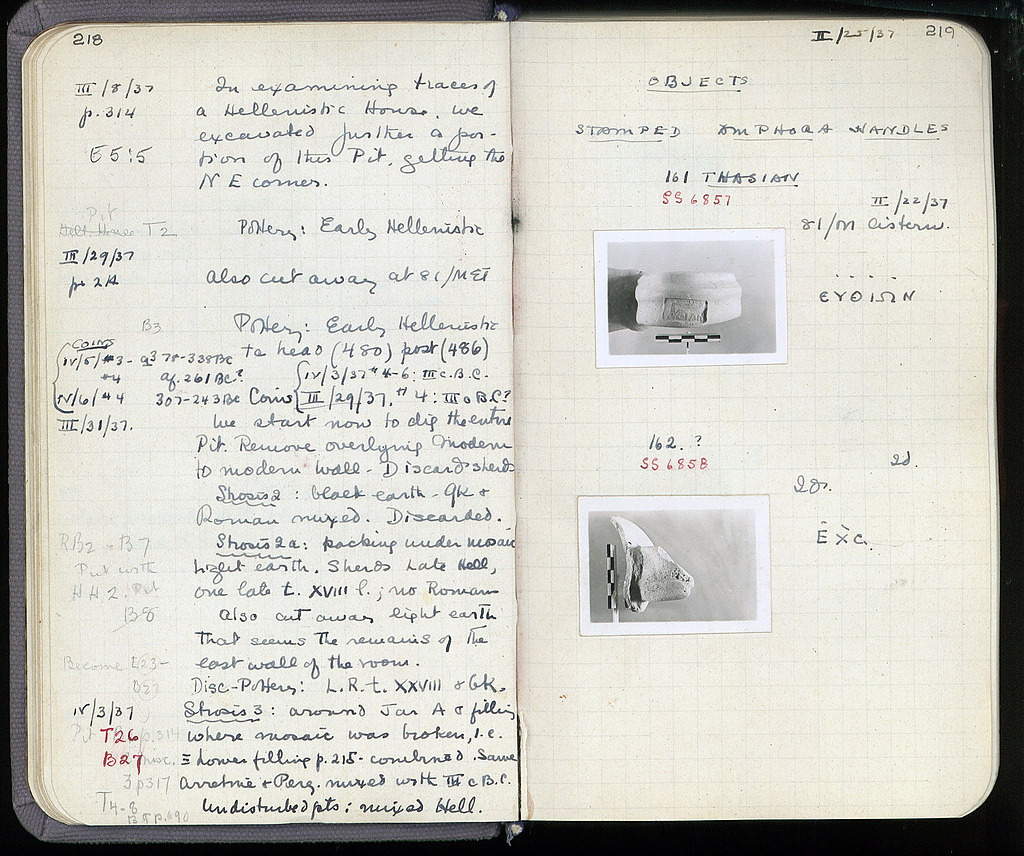 218
III/8/37 In examining traces of
p. 314 a Hellenistic House, we
excavated further a por-
E 5:5 tion of this Pit, getting the
N E corner.
Pit
Hell. House T2 Pottery: Early Hellenistic
III/29/37
p. 214 also cut away at 81/ΜΣΤ
B3 Pottery: Early Hellenistic
Coins to head (480) post (486)
IV/5/#3- 378-338 BC
#4 af. 261 BC? IV/3/37 #4-6: III c. B.C.
IV/6/#4 307-243 BC Coins III/29/37, #4: III c B.C?
III/31/37. We start now to dig the entire
Pit. Remove overlying modern
to modern wall - Discard sherds
Strosis 2: black earth - Gk &
Roman mixed. Discarded.
RB2 & B7 Strosis 2a: packing under mosaic
Put with Light earth. Sherds Late Hell,
HH2. Pit one late t. XVIII l.; no Roman
B8 Also cut away light earth
that seems the remains of the
Become east wall of the room.
Disc-Pottery: L.R.t. XXVIII & Gk.
IV/3/37 Strosis 3: around Jar A & filling
T26 p. 314 where mosaic was broken, i.e.
B27 = Lower filling p. 215 - combined. Same
3 p317 Arretine & Perg. mixed with III c B.C.
T4-8 Undisturbed pts: mixed Hell.
II/25/37 219
OBJECTS
STAMPED AMPHORA HANDLES
161 THASIAN
SS 6857
II/22/37
81/M Cistern.
. . . .
ΕΥΘΙΩΝ
162. ?
SS 6858
id.
Exc.